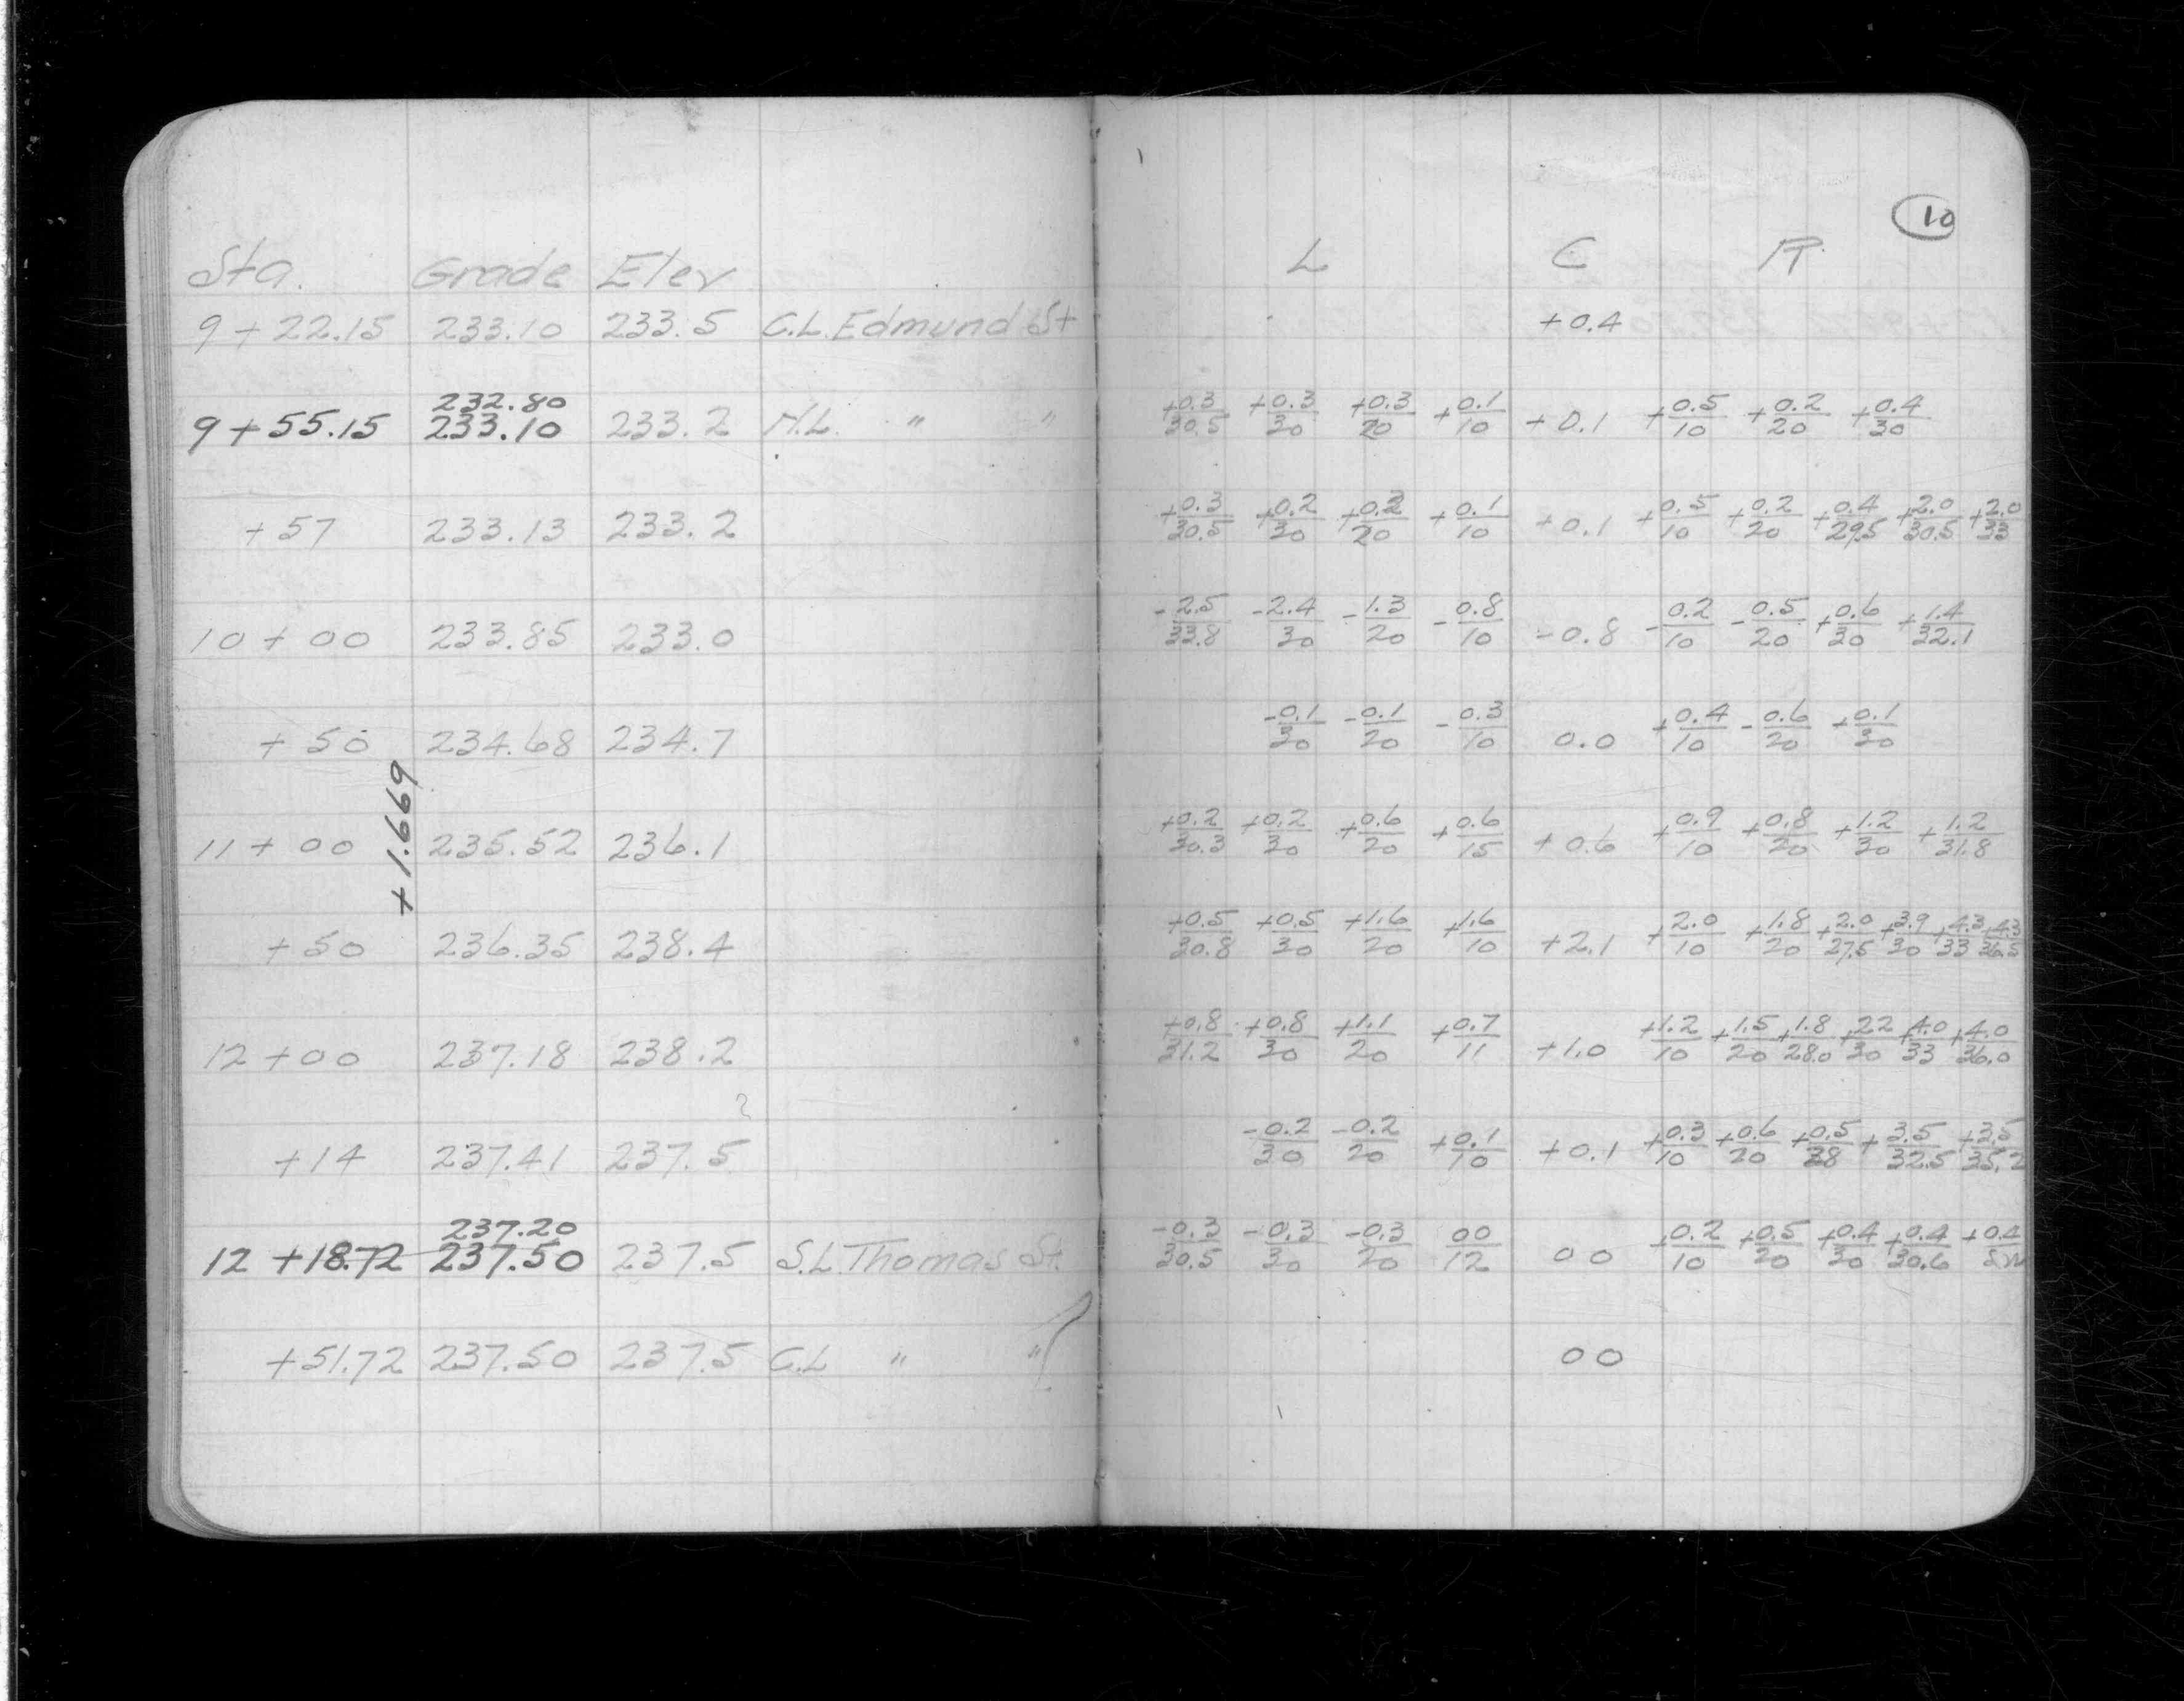 10
Sta. Grade Elev L C R
9 + 22.15 233.10 233.5 C.L. Edmund St +0.4
232.80
9 + 55.15 233.10 233.2 N.L. " " +0.3/30.5 +0.3/30 +0.3/20 +0.1/10 +0.1 +0.5/10 +0.2/20 +0.4/30
+57 233.13 233.2 +0.3/30.5 +0.2/30 +0.2/20 +0.1/10 +0.1 +0.5/10 +0.2/20 +0.4/29.5 +2.0/30.5 +2.0/33
10 + 00 233.85 233.0 -2.5/33.8 -2.4/30 -1.3/20 -0.8/10 -0.8 -0.2/10 -0.5/20 +0.6/30 +1.4/32.1
+ 50 234.68 234.7 -0.1/30 -0.1/20 -0.3/10 0.0 +0.4/10 -0.6/20 +0.1/30
+1.669
11 + 00 235.52 236.1 +0.2/30.3 +0.2/30 +0.6/20 +0.6/15 +0.6 +0.9/10 +0.8/20 +1.2/30 +1.2/31.8
+ 50 236.35 238.4 +0.5/30.8 +0.5/30 +1.6/20 +1.6/10 +2.1 +2.0/10 +1.8/20 +2.0/27.5 +3.9/30 +4.3/33 +4.3/36.5
12 + 00 237.18 238.2 +0.8/31.2 +0.8/30 +1.1/20 +0.7/11 +1.0 +1.2/10 +1.5/20 +1.8/28.0 +2.2/30 +4.0/33 +4.0/36.0
?
+14 237.41 237.5 -0.2/30 -0.2/20 +0.1/10 +0.1 +0.3/10 +0.6/20 +0.5/28 +3.5/32.5 +3.5/35.2
237.20
12 +18.72 237.50 237.5 S.L. Thomas St. -0.3/30.5 -0.3/30 -0.3/20 00/12 00 +0.2/10 +0.5/20 +0.4/30 +0.4/30.6 +0.4
+51.72 237.50 237.5 C.L " " 00